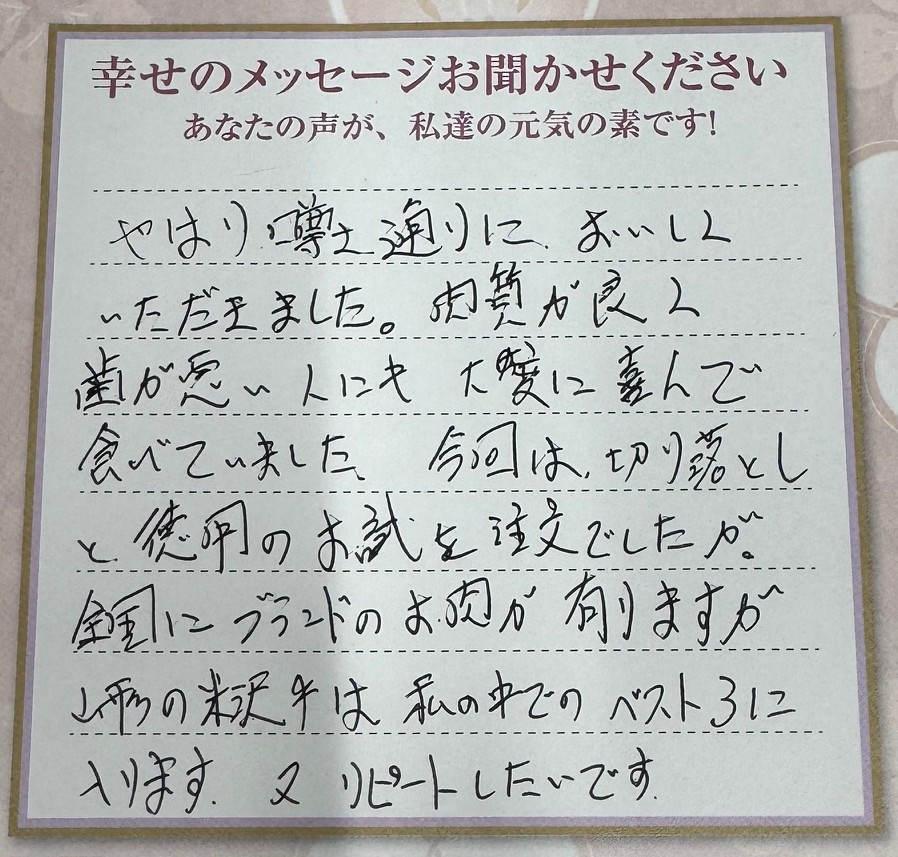 幸せのメッセージお聞かせください
あなたの声が、私達の元気の素です!
やはり噂通りに、おいしく
いただきました。肉質が良く
歯が悪い人にも 大変に喜んで
食べていました、 今回は、切り落とし
と徳用のお試を注文でしたが。
全国にブランドのお肉が有りますが
山形の米沢牛は私の中でのベスト3に
入ります。 又 リピートしたいです。